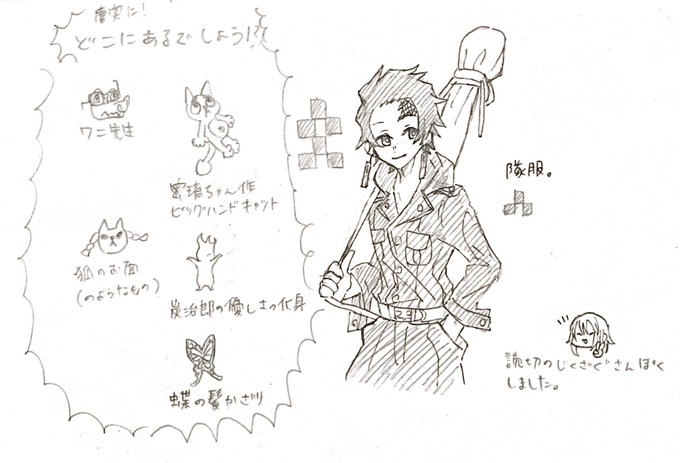 唐突に!
どこにあるでしょう!?
ワニ先生
蜜璃ちゃん作
ビッグハンドキャット
狐のお面
(のようなもの)
炭治郎の優しさの化身
蝶の髪かざり
隊服。
読切のじぐざぐさんぽく
しました。